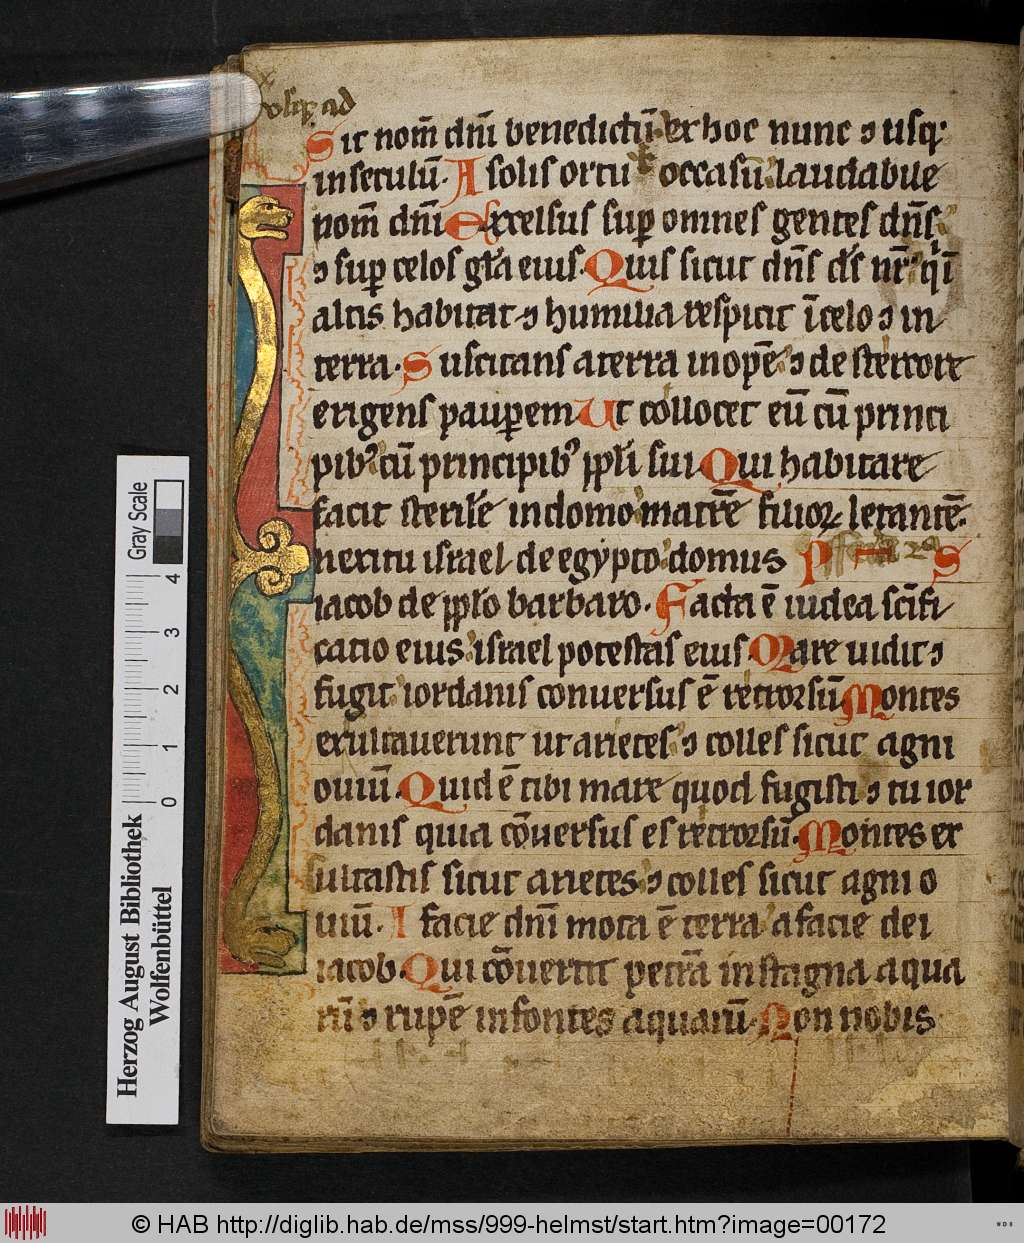 Sit nom̄ dn̄i benedictū ex hoc nunc ⁊ usq;
in seculū. A solis ortu occasū laudabile
nom̄ dn̄i Excelsus suꝑ omnes gentes dn̄s
⁊ suꝑ celos gl̄a eius. Quis sicut dn̄s ds̄ nr̄ qͥ ī
altis habitat ⁊ humilia respicit ī celo ⁊ in
terra. Suscitans a terra inopē ⁊ de stercore
erigens pauꝑem Ut collocet eū cū princi
pibꝰ cū principibꝰ ppl̄i sui Qui habitare
facit sterilē in domo matrē filioꝝ letantē.
n exitu israel de egypto domus P S
iacob de ppl̄o barbaro. Facta ē iudea scīfi
catio eius israel potestas eius Mare uidit ⁊
fugit iordanis conuersus ē retrorsū Montes
exultauerunt ut arietes ⁊ colles sicut agni
ouiū Quid ē tibi mare quod fugisti ⁊ tu ior
danis quia cōuersus es retrorsū. Montes ex
ultastis sicut arietes ⁊ colles sicut agni o
uiū. A facie dn̄i mota ē terra a facie dei
iacob Qui cōuertit petrā in stagna aqua
rū ⁊ rupē in fontes aquarū Non nobis
Herzog August Bibliothek
Wolfenbüttel
0 1 2 3 4
Gray Scale
© HAB http://diglib.hab.de/mss/999-helmst/start.htm?image=00172
WDB